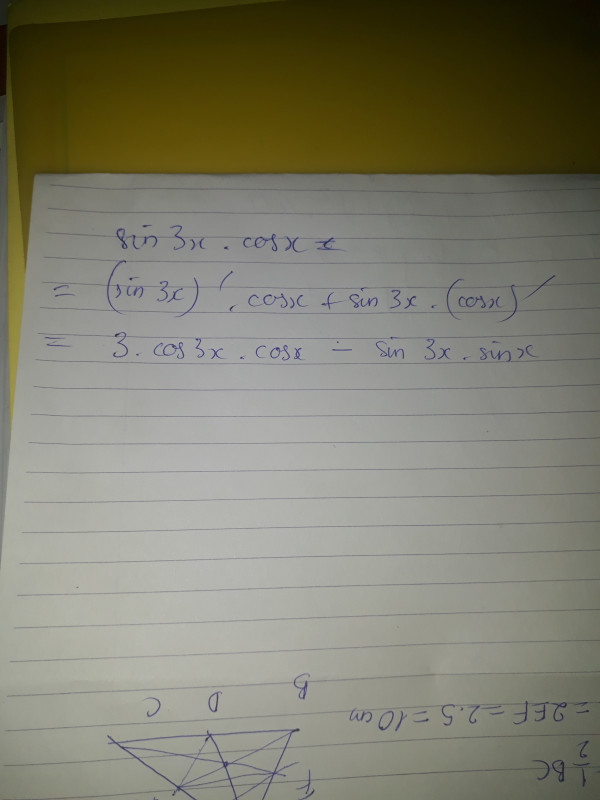 sin 3x . cosx =
= (sin 3x)' . cosx + sin 3x . (cosx)'
= 3 . cos3x . cosx - sin 3x . sinx
1/2 BC
= 2EF = 2.5 = 10 cm
B D C
F